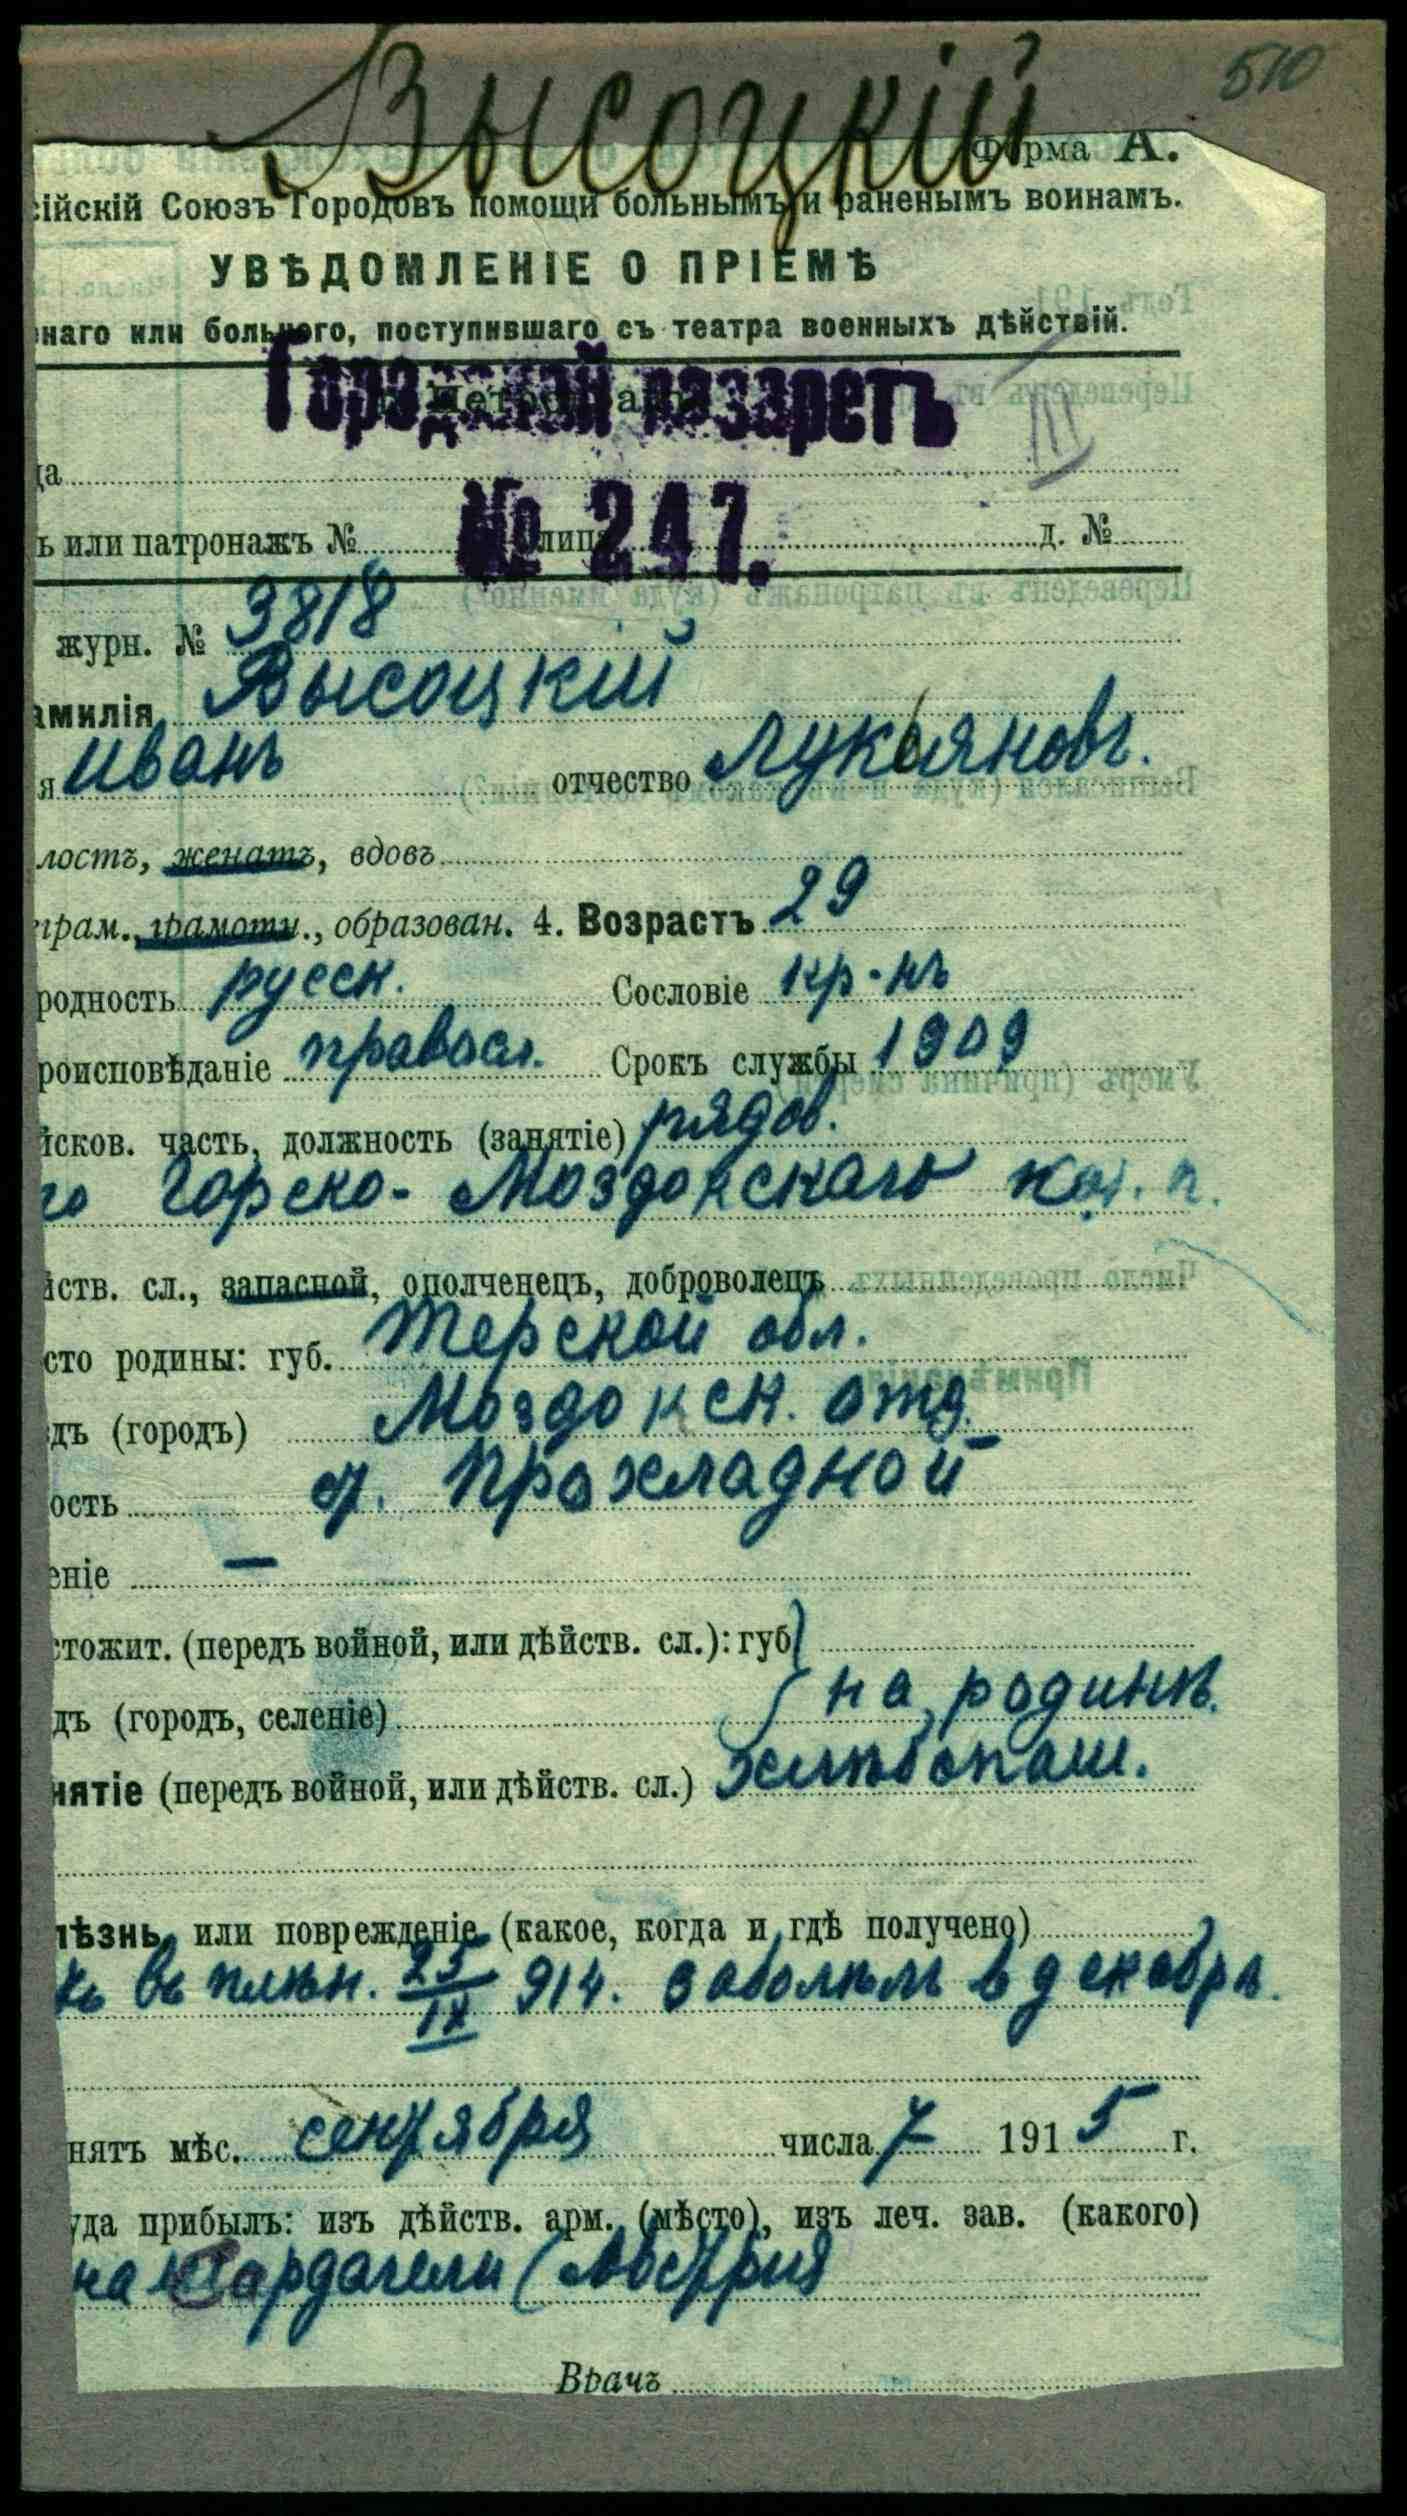 Высоцкій
510
Форма А.
сійскій Союзъ Городовъ помощи больнымъ и раненымъ воинамъ.
УВѢДОМЛЕНІЕ О ПРІЕМѢ
енаго или больного, поступившаго съ театра военныхъ дѣйствій.
Городской лазаретъ
III
да
№ 247.
ъ или патронажъ № улица д. №
журн. № 3818
амилія Высоцкій
я Иванъ отчество Лукьяновъ.
лостъ, женатъ, вдовъ
грам., грамотн., образован. 4. Возрастъ 29
родность русск. Сословіе кр-нъ
роисповѣданіе правосл. Срокъ службы 1909
йсков. часть, должность (занятіе) рядов.
го Горско-Моздокскаго каз. п.
йств. сл., запасной, ополченецъ, доброволецъ
сто родины: губ. Терской обл.
здъ (городъ) Моздокск. отд.
ость ст. Прохладной
еніе —
стожит. (передъ войной, или дѣйств. сл.): губ.
дъ (городъ, селеніе) на родинѣ.
нятіе (передъ войной, или дѣйств. сл.) хлѣбопаш.
лѣзнь или поврежденіе (какое, когда и гдѣ получено)
ъ въ плѣн. 25/IX 914. Заболѣлъ в декабрѣ.
нятъ мѣс. сентября числа 7 1915 г.
уда прибылъ: изъ дѣйств. арм. (мѣсто), изъ леч. зав. (какого)
(Австрия
Врачъ